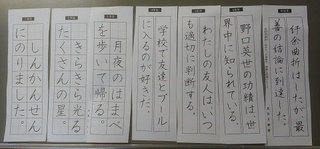 紆余曲折は、たが最
善の結論に到達した。
野口英世の功績は世
界中に知られている。
わたしの友人はいつ
も適切に判断する。
学校で友達とプール
に入るのが好きだ。
月夜のはまべ
を歩いて帰る。
きらきら光る
たくさんの星。
しんかんせん
にのりました。